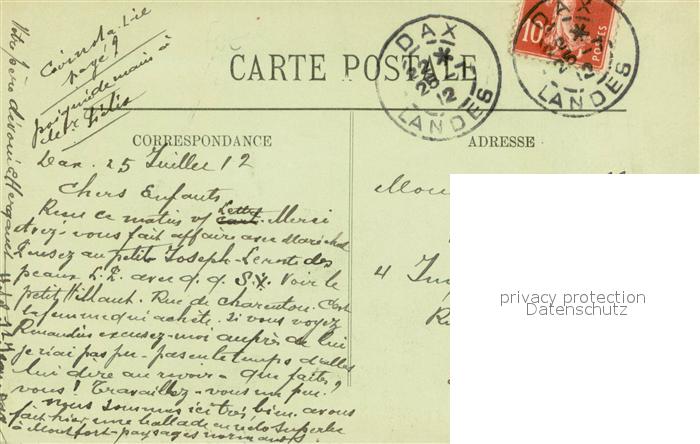 CARTE POSTALE
CORRESPONDANCE
ADRESSE
DAX
LANDES
DAX
LANDES
10
POSTES
payé 9
Dax. 25 Juillet 12
Chers Enfants
Reçu ce matin v/ Lettre Merci
Avez-vous fait affaire avec Maréchal
Pensez au petit Joseph
peaux L.L. avec q.q. S.X. Voir le
petit Villaut. Rue de Charenton. C'est
la femme qui achète. Si vous voyez
excusez-moi auprès de lui
je n'ai pas pu - pas eu le temps d'aller
lui dire au revoir - que faites
vous! Travaillez-vous un peu!
nous sommes ici très bien. avons
fait hier une ballade en auto superbe
à Montfort - paysages normands
Votre père dévoué
4
privacy protection
Datenschutz